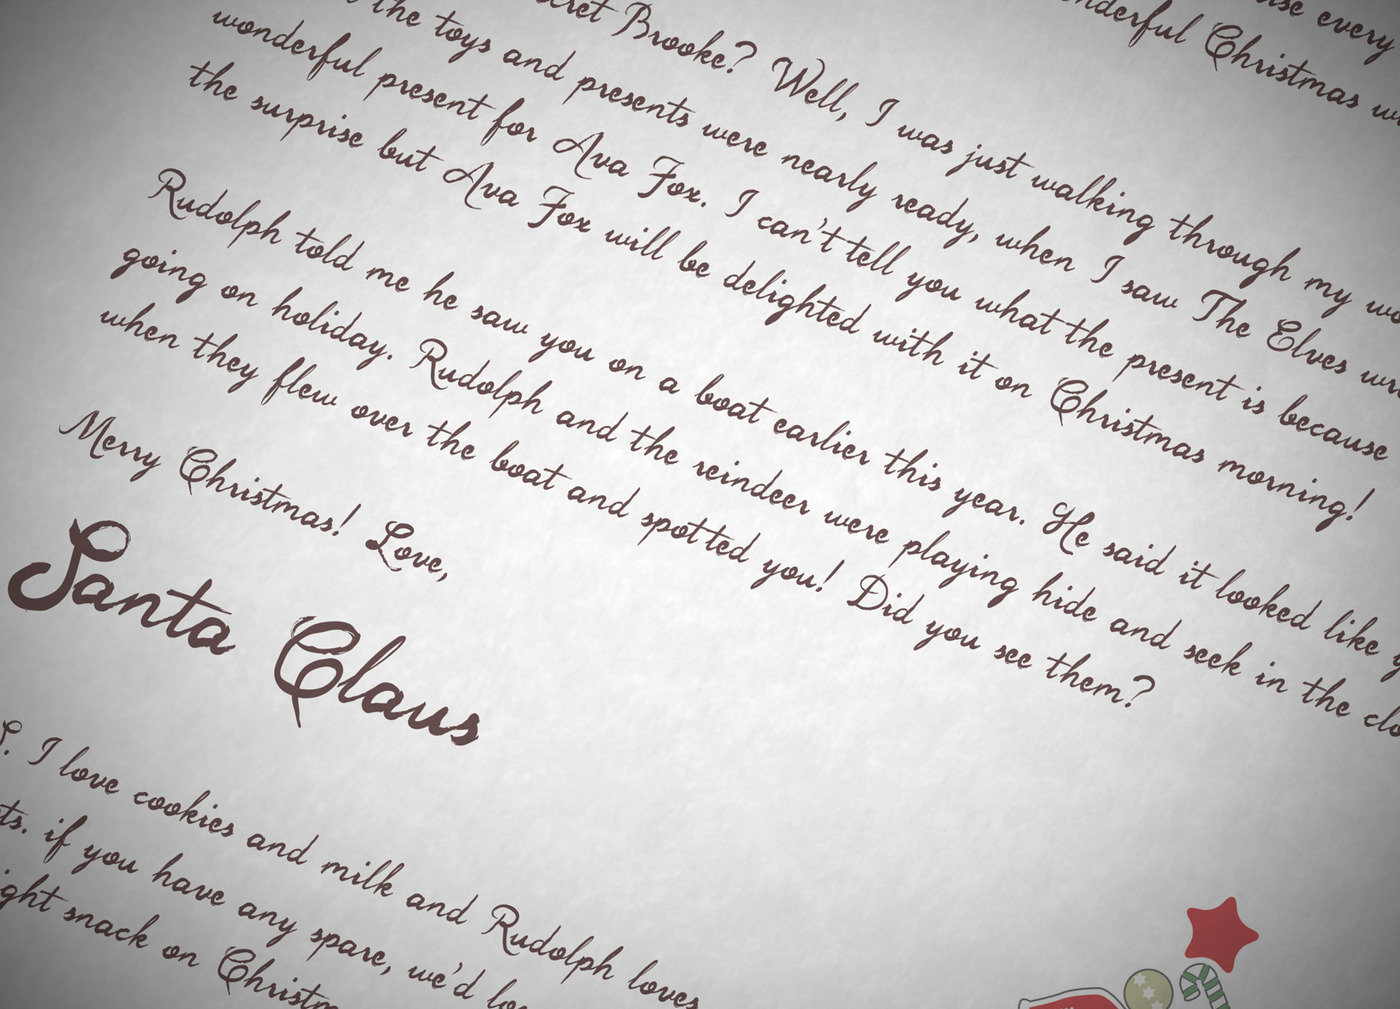 every
Christmas
Brooke? Well, I was just walking through my
the toys and presents were nearly ready, when I saw The Elves
wonderful present for Ava Fox. I can't tell you what the present is because
the surprise but Ava Fox will be delighted with it on Christmas morning!
Rudolph told me he saw you on a boat earlier this year. He said it looked like
going on holiday. Rudolph and the reindeer were playing hide and seek in the
when they flew over the boat and spotted you! Did you see them?
Merry Christmas! Love,
Santa Claus
I love cookies and milk and Rudolph loves
if you have any spare, we'd
snack on